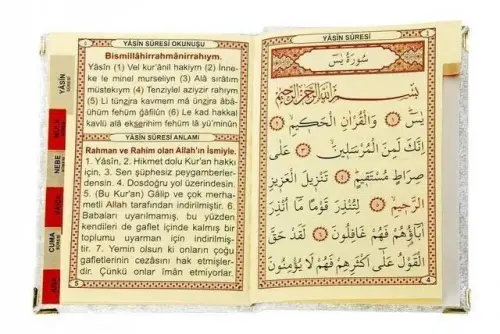 YÂSÎN SÛRESİ OKUNUŞU
Bismillâhirrahmânirrahıym.
Yâsîn (1) Vel kur'ânil hakıym (2) İnne-
ke le minel murseliyn (3) Alâ sırâtım
müstekıym (4) Tenziylel aziyzir rahıym
(5) Li tünzira kavmem mâ ünzira âbâ-
ühüm fehüm gâfilûn (6) Le kad hakkal
kavlü alâ ekserihim fehüm lâ yü'minûn
YÂSÎN SÛRESİ ANLAMI
Rahman ve Rahim olan Allah'ın İsmiyle.
1. Yâsîn, 2. Hikmet dolu Kur'an hakkı
için, 3. Sen şüphesiz peygamberler-
densin. 4. Dosdoğru yol üzerindesin.
5. (Bu Kur'an) Gâlip ve çok merha-
metli Allah tarafından indirilmiştir. 6.
Babaları uyarılmamış, bu yüzden
kendileri de gaflet içinde kalmış bir
toplumu uyarman için indirilmiş-
tir. 7. Yemin olsun ki onların çoğu
gafletlerinin cezasını hak etmişler-
dir. Çünkü onlar îman etmiyorlar.
5
YÂSİN
NEBE
CUMA
YÂSİN SÛRESİ
سُورَةُ يٰسٓ
بِسْمِ اللّٰهِ الرَّحْمٰنِ الرَّحِيمِ
يٰسٓ ﴿١﴾ وَالْقُرْاٰنِ الْحَكِيمِ ﴿٢﴾
اِنَّكَ لَمِنَ الْمُرْسَلِينَ ﴿٣﴾ عَلٰى
صِرَاطٍ مُسْتَقِيمٍ ﴿٤﴾ تَنْزِيلَ الْعَزِيزِ
الرَّحِيمِ ﴿٥﴾ لِتُنْذِرَ قَوْمًا مَٓا اُنْذِرَ
اٰبَٓاؤُهُمْ فَهُمْ غَافِلُونَ ﴿٦﴾ لَقَدْ حَقَّ
الْقَوْلُ عَلٰٓى اَكْثَرِهِمْ فَهُمْ لَا يُؤْمِنُونَ
4